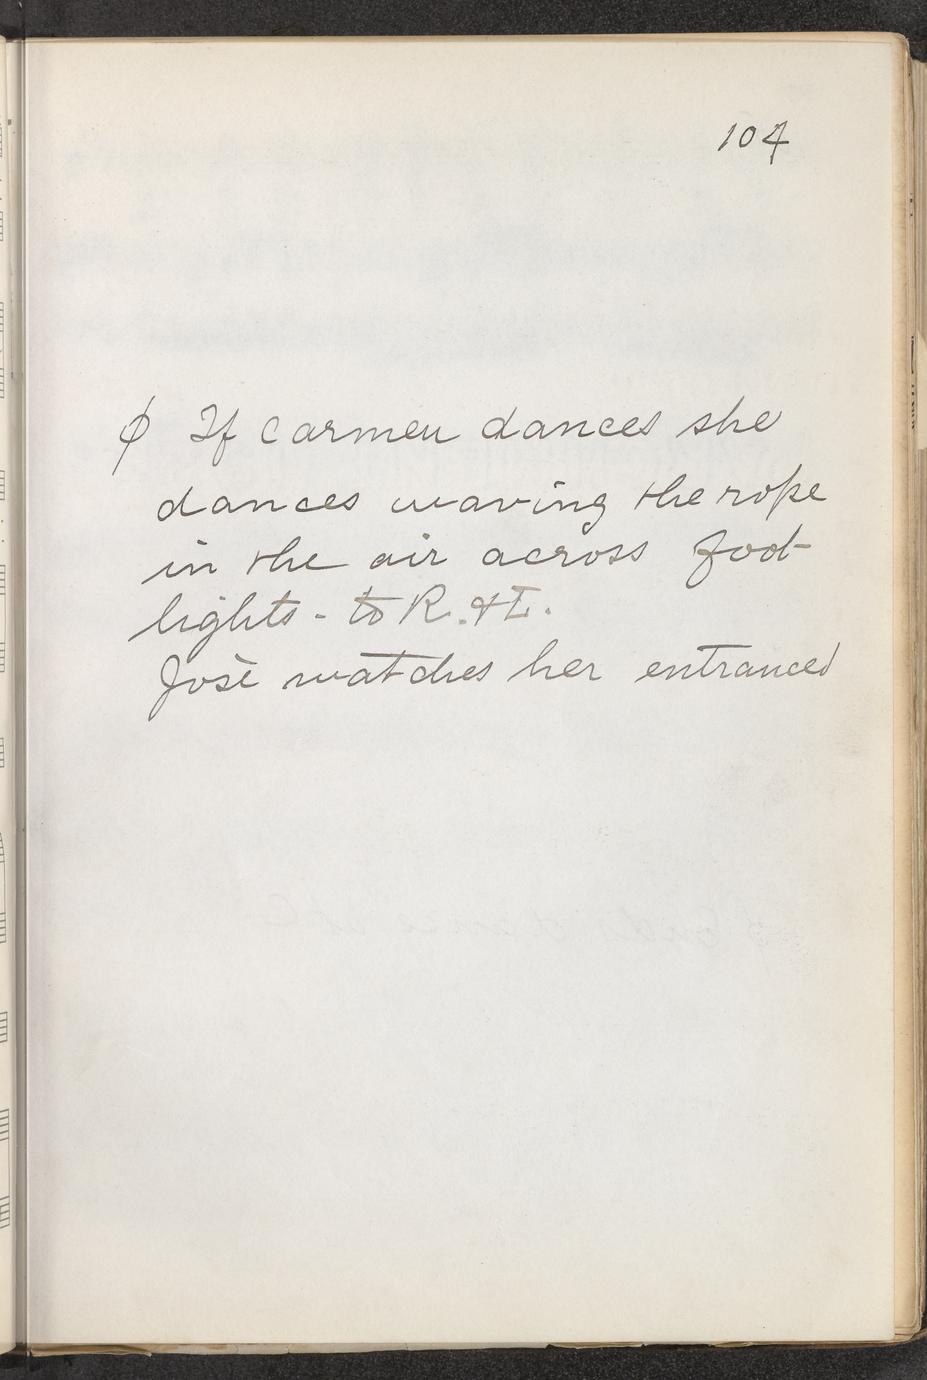 104
φ If Carmen dances she
dances waving the rope
in the air across foot-
lights - to R. & L.
Josè watches her entranced